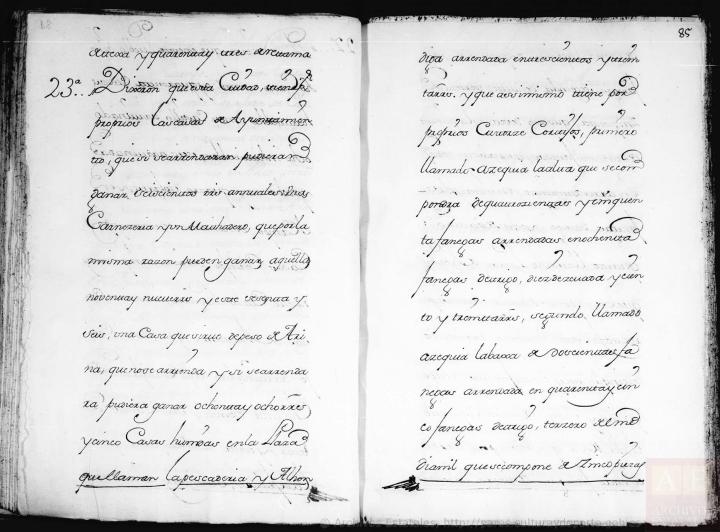 de texa y quarenta y tres de retama
23.ª Dixeron que esta Ciudad, tiene pr.
proprios las casas de Ayuntamien
to, que si se arrendaran pudieran
ganar seiscientos rrs annuales, una
Carnezeria y un Mathadero, que por la
misma razon pueden ganar, aquella
noventa y nueve rrs y este sesenta y
seis, una Casa que sirue de peso de Ari
na, que no se arrienda y si se arrenda
ra pudiera ganar ochenta y ocho rrs
y cinco Casas en la Plaza
que llaman la pescaderia y Alhon
85
diga arrendada en trescientos y trein
ta rrs. y que assimismo tiene por
proprios Cortijos, primero
llamado Azequia la alua que se com
pondrá de quatrozientas y cinquen
ta fanegas arrendadas en ochenta
fanegas de trigo, diez de zeuada y cien
to y treinta rrs, segundo llamado
azequia la baxa de doscientas fa
negas arrendada en quarenta y cin
co fanegas de trigo, terzero de
diamil que se compone de zinco piezas